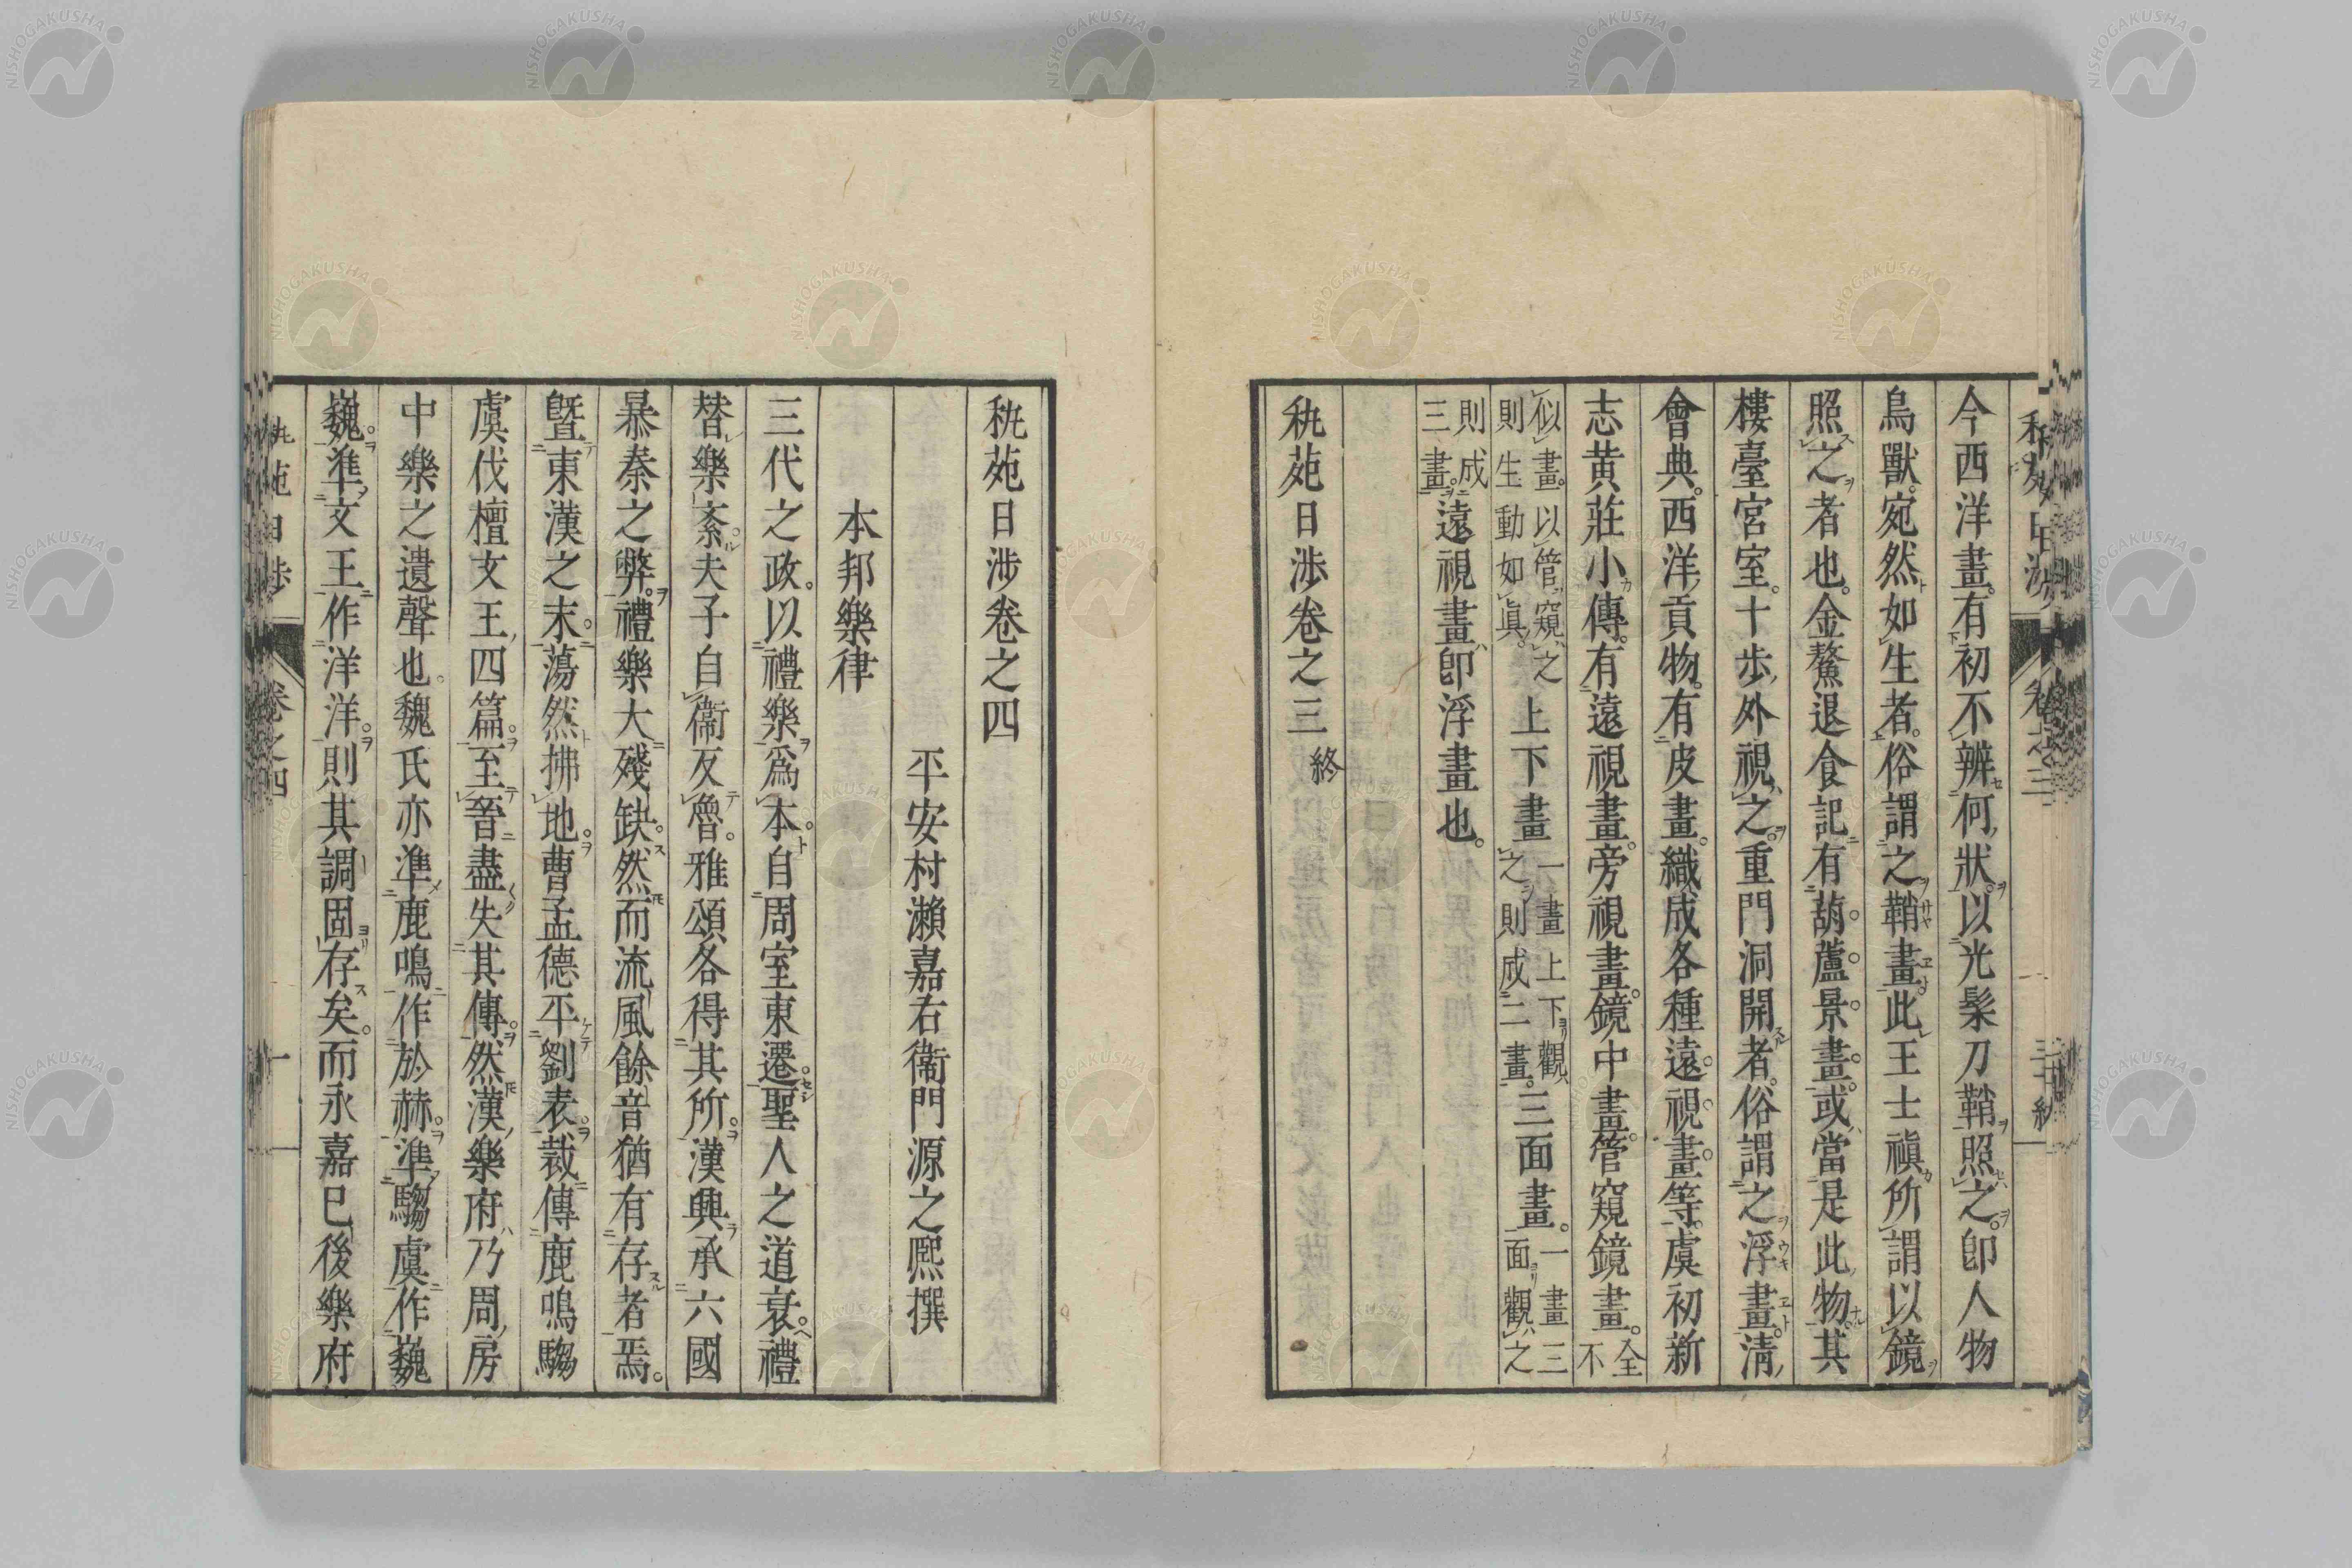 今西洋畫。有初不辨何狀。以光髹刀鞘照之。卽人物
鳥獸。宛然如生者。俗謂之鞘畫。此王士禛所謂以鏡
照之者也。金鰲退食記有葫蘆景畫。或當是此物。其
樓臺宮室。十歩外視之。重門洞開者。俗謂之浮畫。淸
會典。西洋貢物。有皮畫。織成各種遠視畫等。虞初新
志黄莊小傳。有遠視畫。旁視畫。鏡中畫。管窺鏡畫。全不
似畫。以管窺之
則生動如眞。
上下畫
一畫上下觀
之則成二畫。
三面畫。
一畫三
面觀之
則成
三畫。
遠視畫卽浮畫也。
秇苑日渉卷之三 終
秇苑日渉卷之四
平安村瀨嘉右衞門源之熈撰
本邦樂律
三代之政。以禮樂爲本。自周室東遷。聖人之道衰。禮
替樂紊。夫子自衞反魯。雅頌各得其所。漢興承六國
暴秦之弊。禮樂大殘缺。然而流風餘音猶有存者焉。
曁東漢之末。蕩然拂地。曹孟德平劉表。裁傳鹿鳴騶
虞伐檀文王四篇。至晉盡失其傳。然漢樂府乃周房
中樂之遺聲也。魏氏亦準鹿鳴作於赫。準騶虞作巍
巍。準文王作洋洋。則其調固存矣。而永嘉已後樂府
秇苑日渉
卷之四
一
NISHOGAKUSHA